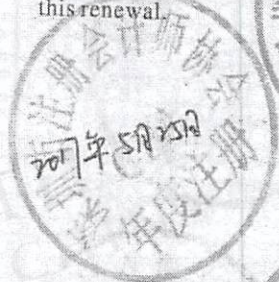 this renewal.
深圳注册会计师协会
2017年5月25日
年度注册